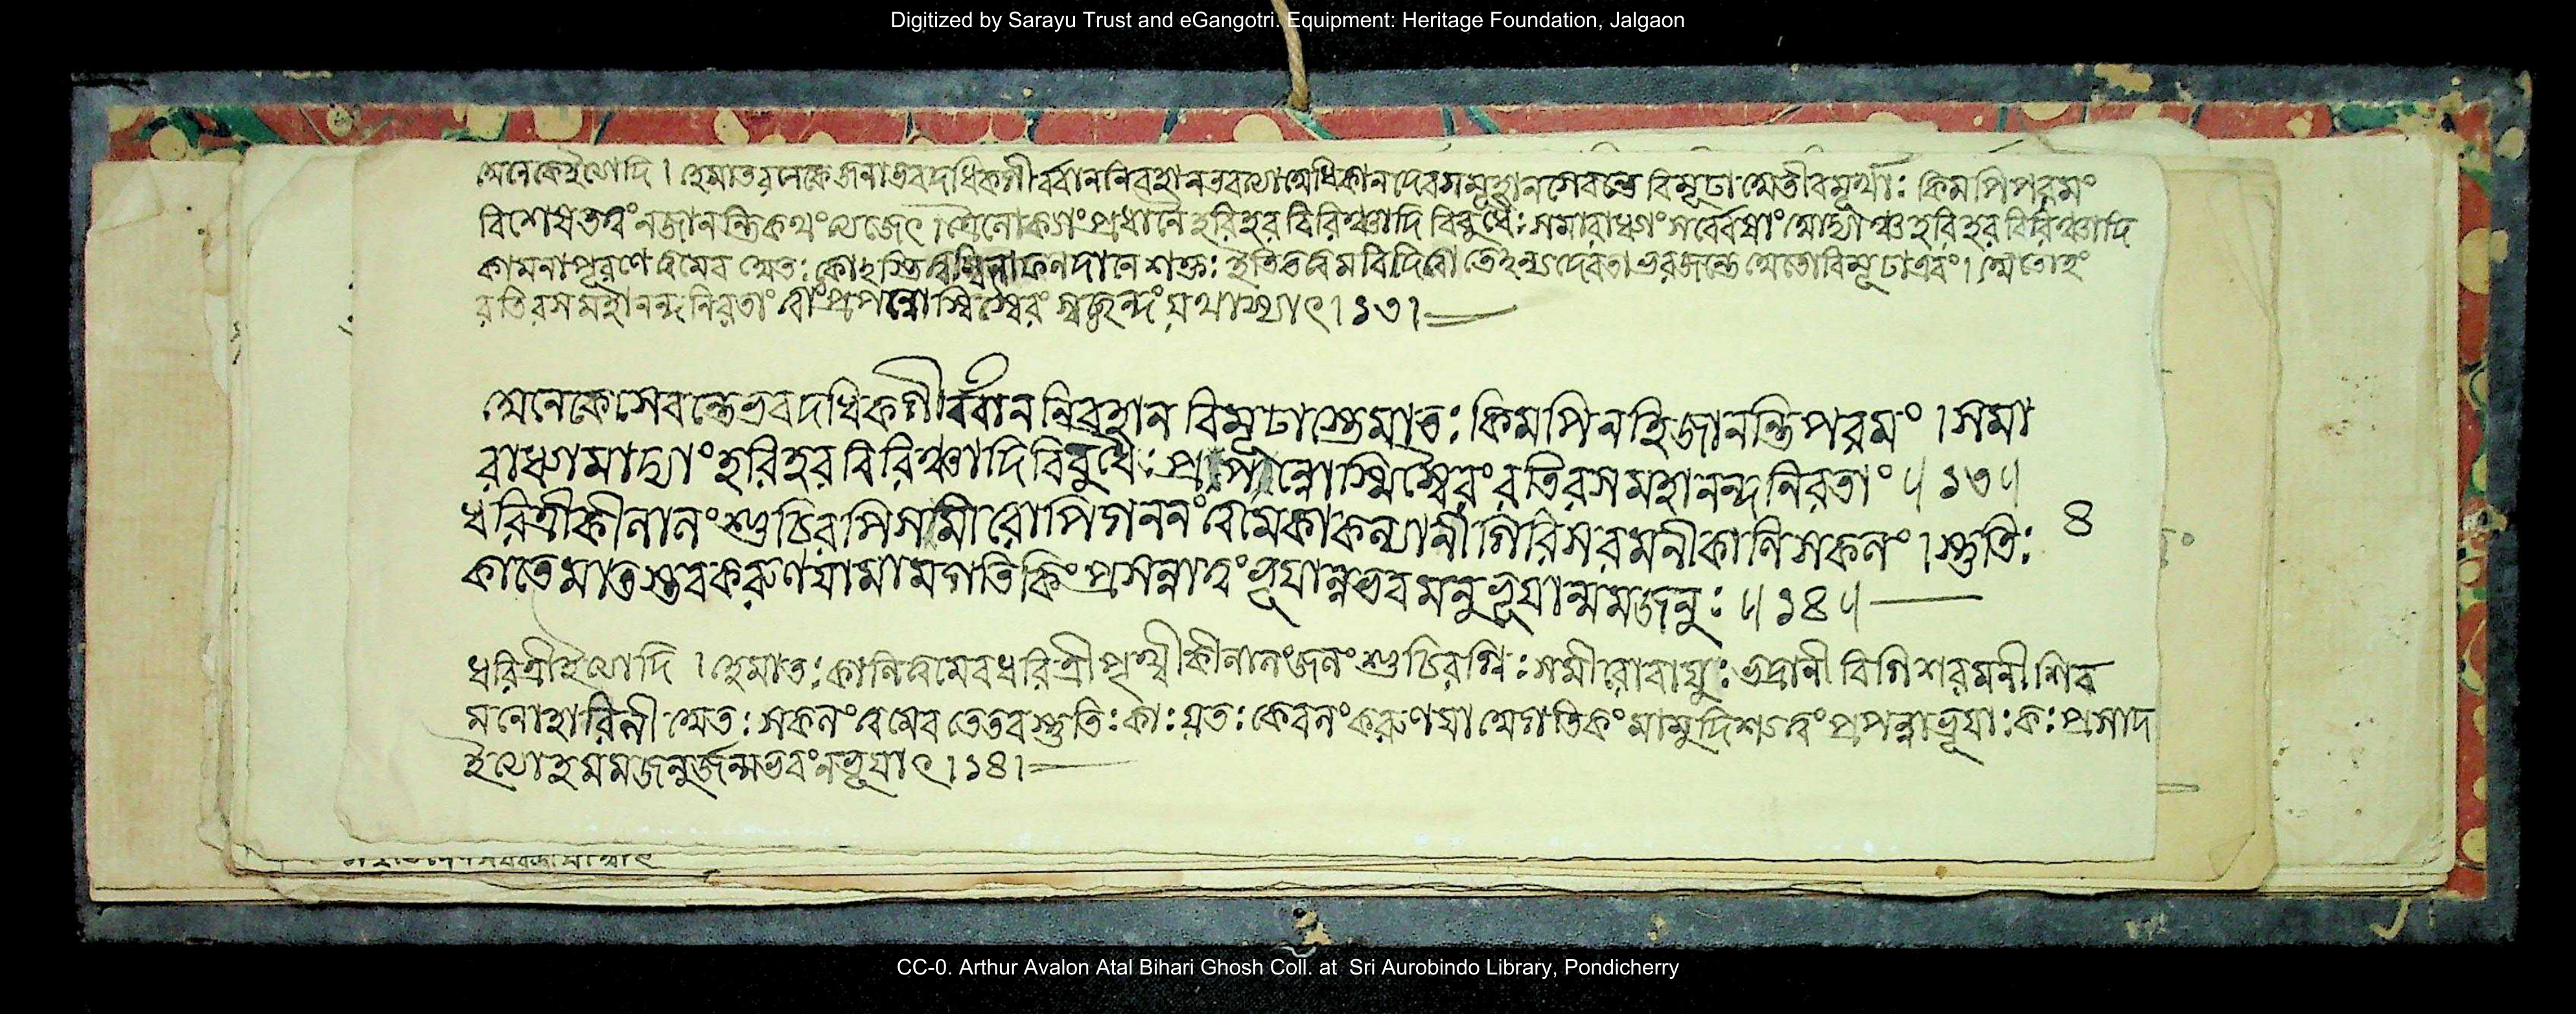 Digitized by Sarayu Trust and eGangotri. Equipment: Heritage Foundation, Jalgaon
অনেকেইত্যাদি । হেমাতরনেকেজনাভবদধিকগীর্ব্বাননিবহানভবত্যাঅধিকানদেবসমূহানসেবন্তে বিমূঢা অতীবমূর্খাঃ কিমপিপরমং
বিশেষতত্বংনজানন্তিকথংত্যজেৎ । হরিহর বিরিঞ্চাদি বিবুধৈঃ সমারাধ্যাং সর্ব্বেষাং হরিহরবিরিঞ্চাদি
কামনাপূরণে ত্বমেব অতঃ কোঽস্তি ফলদানে শক্তঃ ইতি
রতিরসমহানন্দনিরতাং ত্বাংপ্রপন্নোস্মিস্বৈরং স্বচ্ছন্দং যথাস্যাৎ । ১৩ ।
অনেকেসেবন্তেভবদধিকগীর্ব্বাননিবহান বিমূঢাস্তেমাতঃ কিমপিনহিজানন্তিপরমং । সমা
রাধ্যামাদ্যাং হরিহরবিরিঞ্চাদিবিবুধৈঃ প্রপন্নোস্মিস্বৈরংরতিরসমহানন্দনিরতাং ॥ ১৩ ॥
ধরিত্রীকীলালংশুচিরপিসমীরোপিগগনংত্বমেকাকল্যানীগিরিশরমনীকালিসকলং । স্তুতিঃ ৪
কাতেমাতস্তবকরুণযামামগতিকিং প্রসন্নাত্বংভূযান্নভবমনুভূযান্মমজনুঃ ॥ ১৪ ॥
ধরিত্রীইত্যাদি । হেমাতঃ কালিত্বমেবধরিত্রীপৃথ্বীকীলালংজলংশুচিরগ্নিঃ সমীরোবাযুঃ শিব
মনোহারিনী অতঃ সকলংত্বমেব তেতবস্তুতিঃ কাঃ যতঃ কেবলংকরুণযা অগতিকংমামুদ্দিশ্য প্রপন্নাভূযাঃ কঃ প্রসাদ
ইত্যাহ মমজনুর্জন্মভবংনভূযাৎ । ১৪ ।
CC-0. Arthur Avalon Atal Bihari Ghosh Coll. at Sri Aurobindo Library, Pondicherry